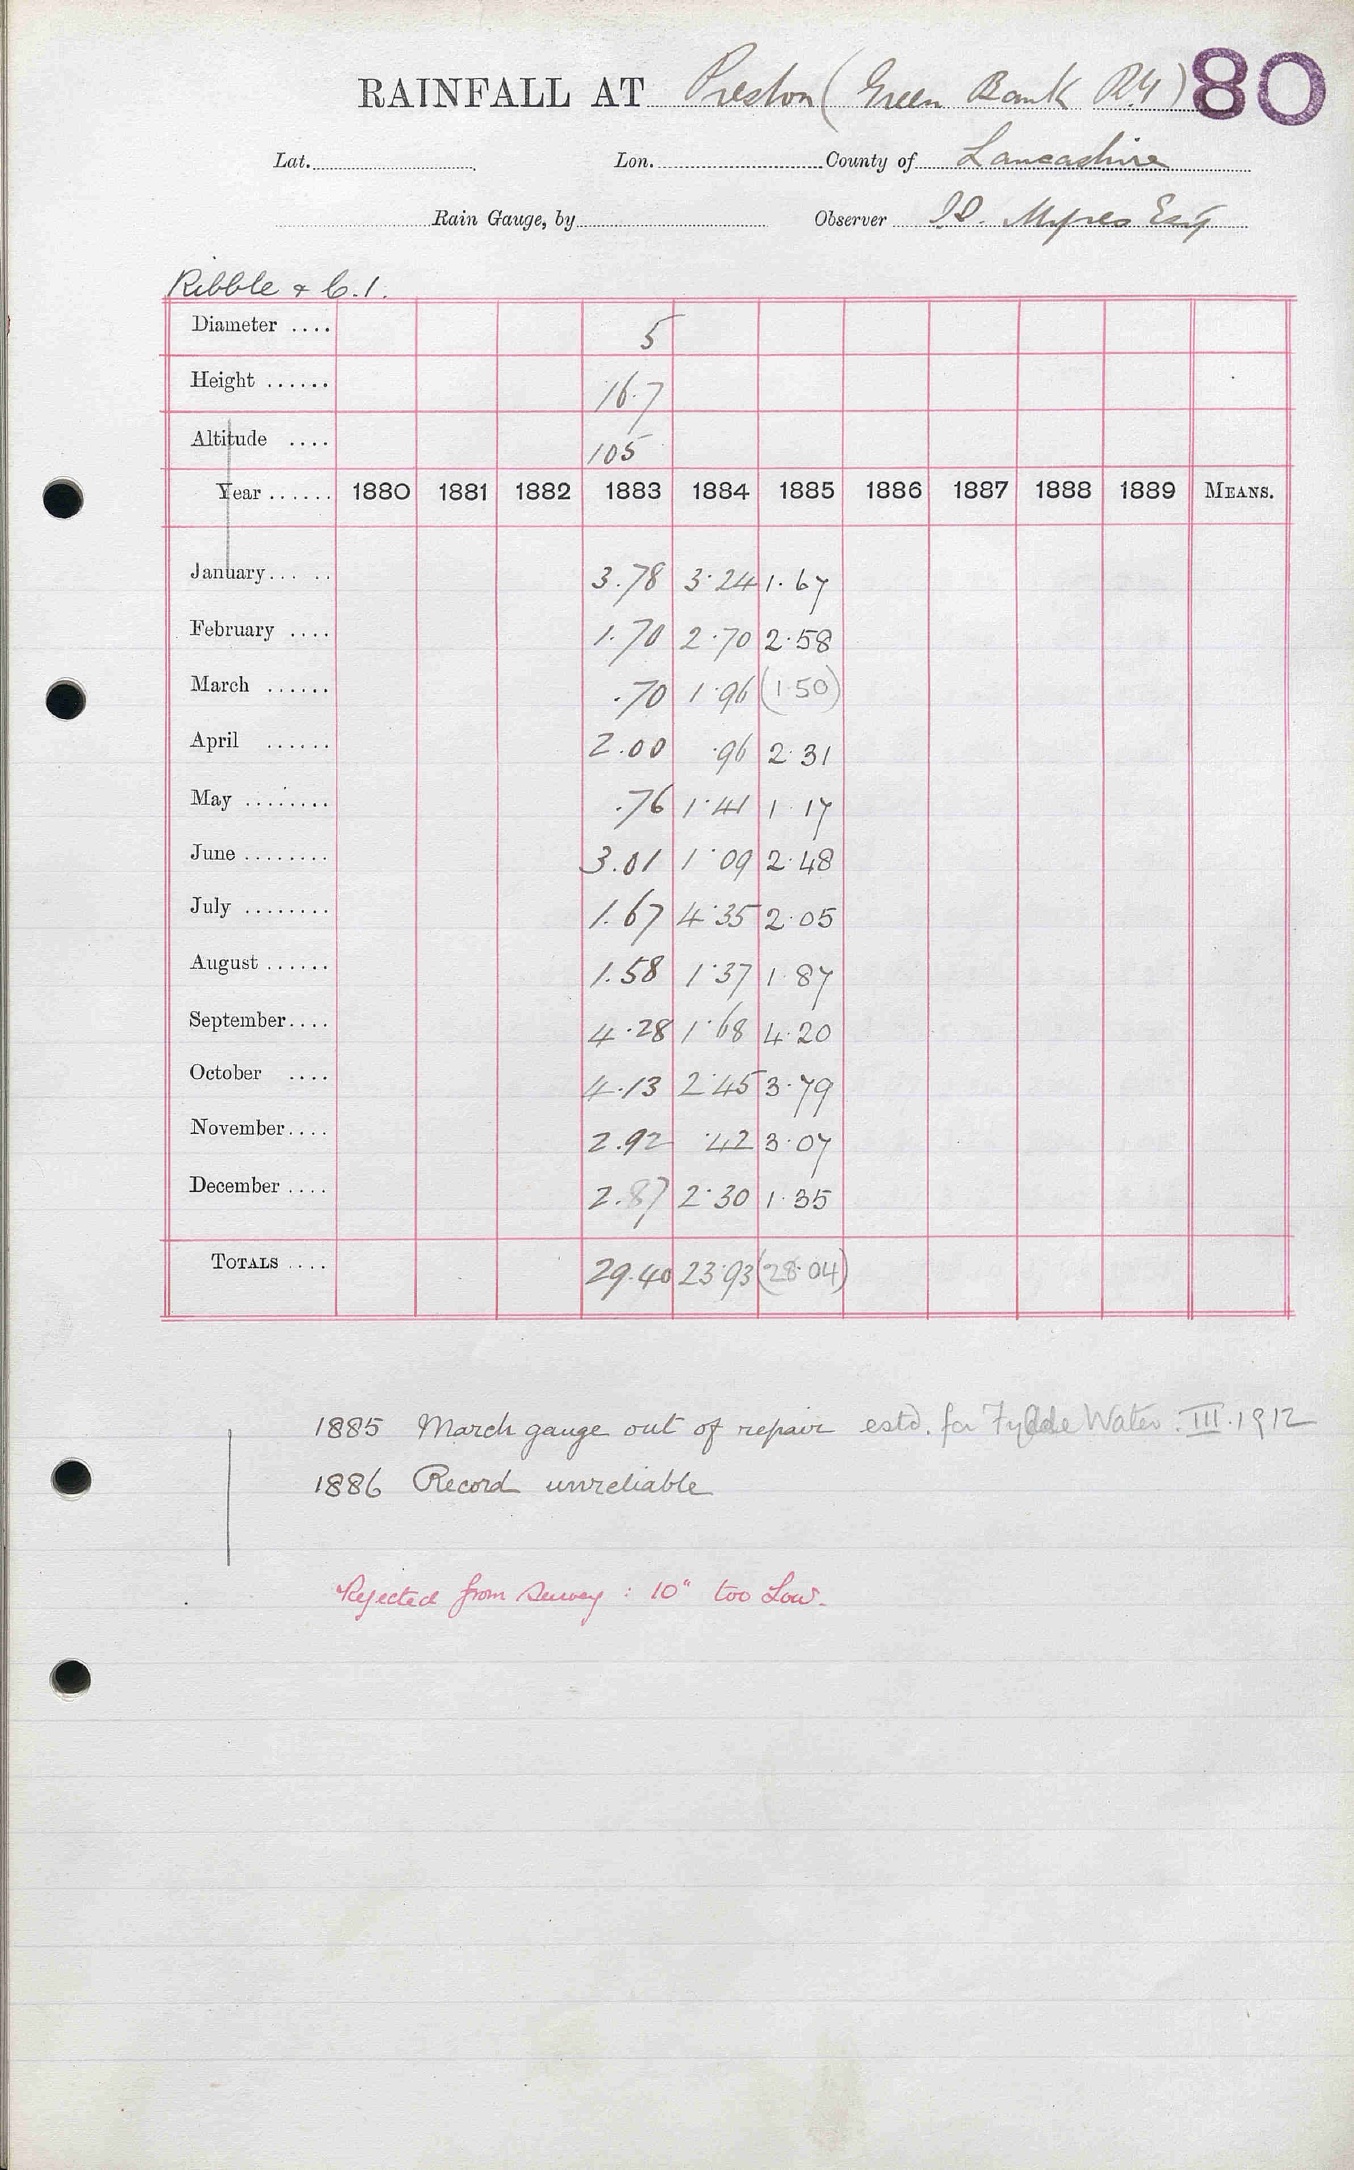 RAINFALL AT Preston (Green Bank Rd) 80
Lat. Lon. County of Lancashire
Rain Gauge, by Observer Myres Esq
Ribble & C.1.
Diameter .... 5
Height ...... 16.7
Altitude .... 105
Year ...... 1880 1881 1882 1883 1884 1885 1886 1887 1888 1889 MEANS.
January... .. 3.78 3.24 1.67
February .... 1.70 2.70 2.58
March ...... .70 1.96 (1.50)
April ...... 2.00 .96 2.31
May ........ .76 1.41 1.17
June ........ 3.01 1.09 2.48
July ........ 1.67 4.35 2.05
August ...... 1.58 1.37 1.87
September.... 4.28 1.68 4.20
October .... 4.13 2.45 3.79
November.... 2.92 .42 3.07
December .... 2.87 2.30 1.35
TOTALS .... 29.40 23.93 (28.04)
1885 March gauge out of repair estd. for Fylde Water. III.1912
1886 Record unreliable
Rejected from Survey : 10" too Low.